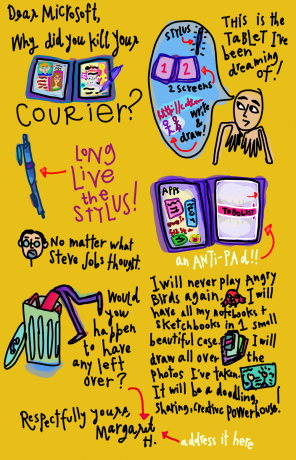 Dear Microsoft,
Why did you kill your
COURIER?
THIS is the
TABLET I've
been
dreaming
of!
STYLUS
1 2
2 screens
write
&
draw!
LONG
LIVE
the
STYLUS!
No matter what
Steve Jobs thought.
APPS
TO DO LIST
an ANTI-PAD!!
Would
you
happen
to have
any left
over?
I will never play Angry
Birds again. I will
have all my notebooks +
sketchbooks in 1 small
beautiful case. I will
draw all over the
photos I've taken.
It will be a doodling,
sharing, creative powerhouse!
Respectfully yours,
Margaret
H.
address it here